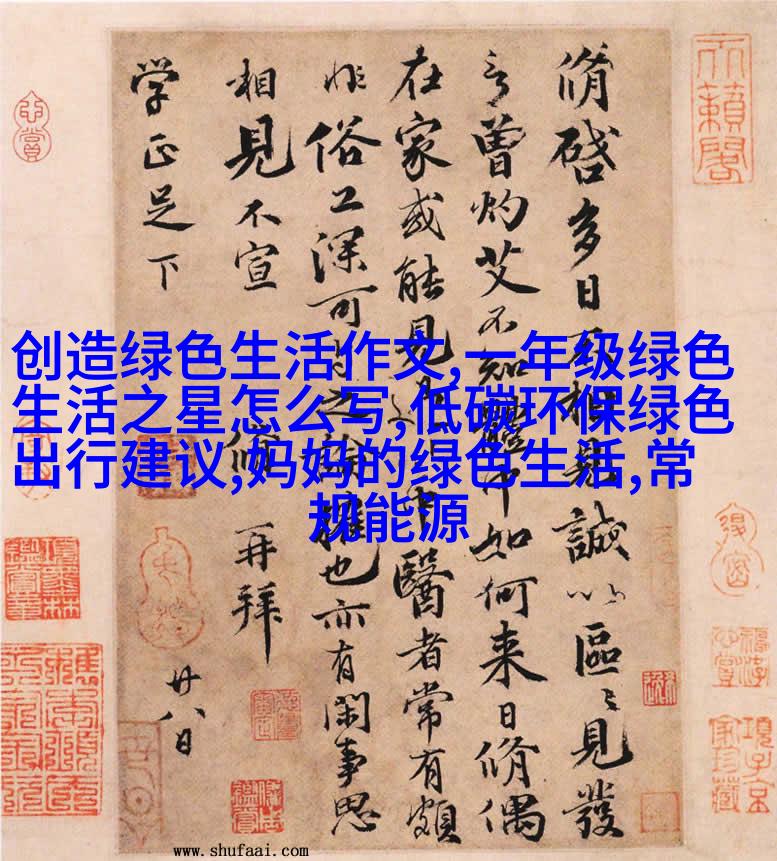 創造绿色生活作文,一年级绿色
生活之星怎么写,低碳环保绿色
出行建议,妈妈的绿色生活,常
规能源
脩啓多日不相見誠以區〻見發
言曾灼艾不知體中如何来日脩偶
在家或能見過此中醫者常有頗
非俗工深可與之論權也亦有閑事思
相見不宣 脩 再拜
学正足下
廿八日
天籟閣
www.shufaai.com